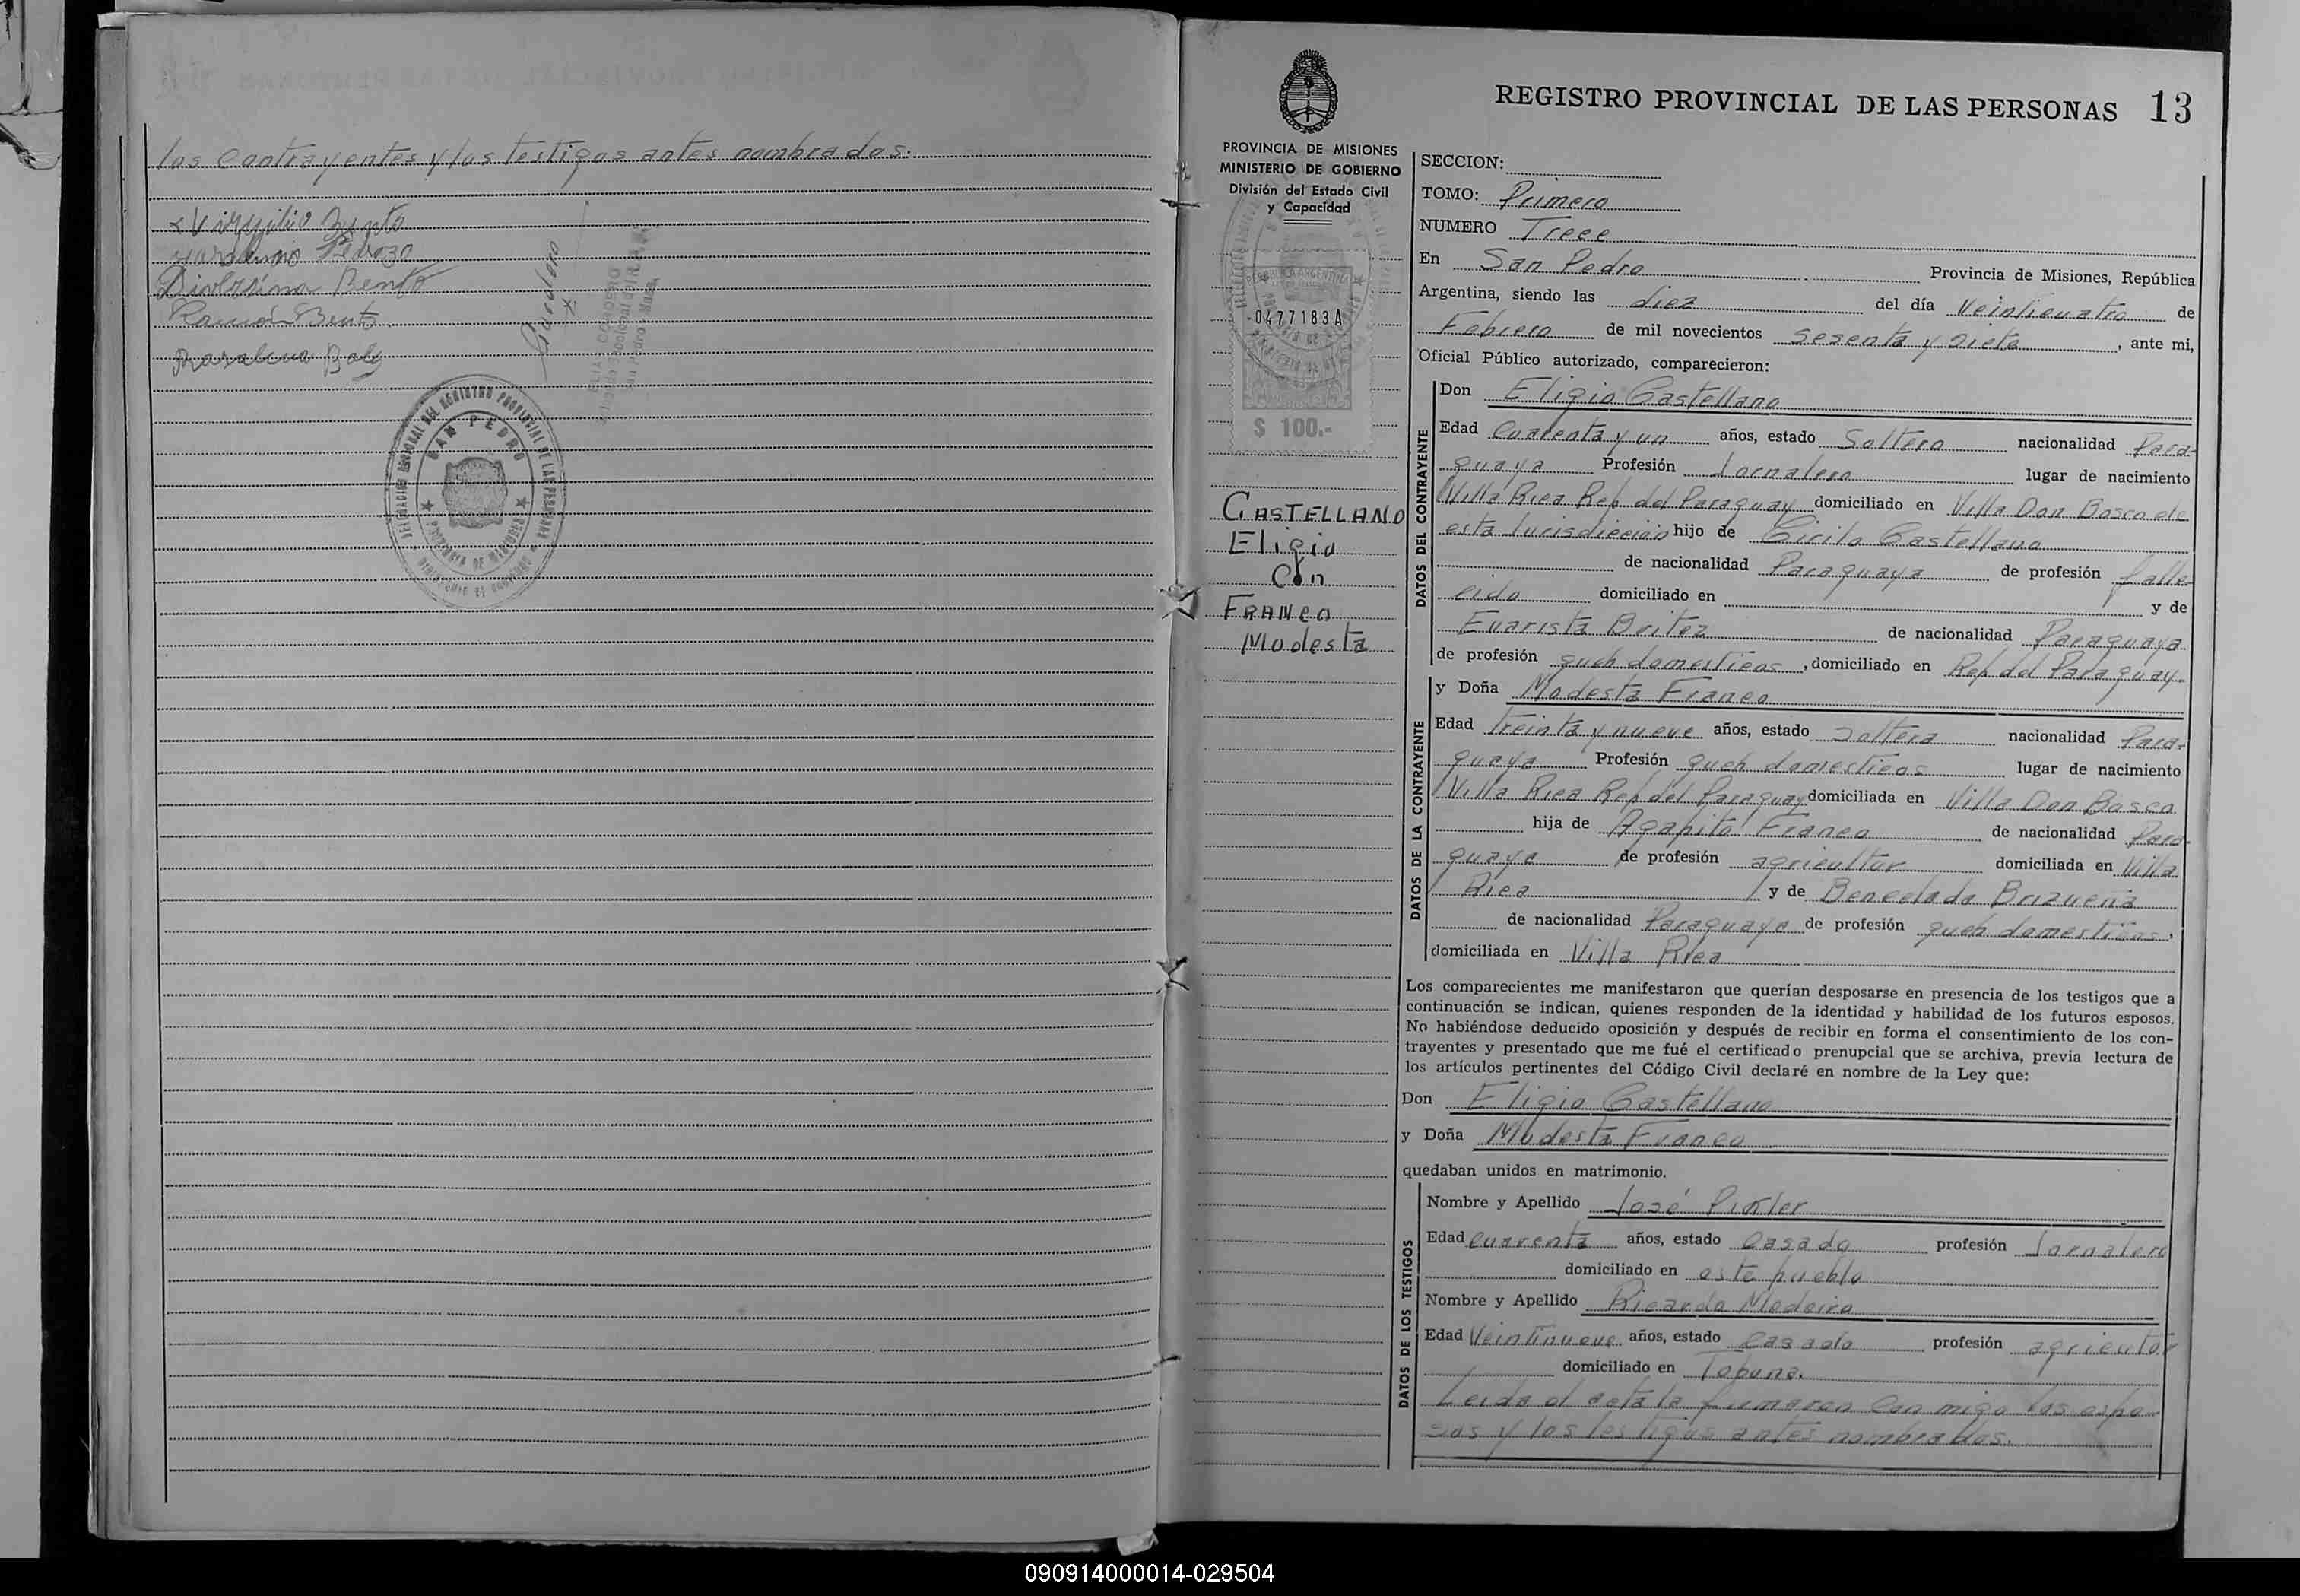 los contrayentes y los testigos antes nombrados.
Virgilio Bento
Pedrozo
Divorsina Bento
Ramón Bento
Rosalina
SAN PEDRO
PROVINCIA DE MISIONES
REGISTRO PROVINCIAL DE LAS PERSONAS 13
PROVINCIA DE MISIONES
MINISTERIO DE GOBIERNO
División del Estado Civil
y Capacidad
REPUBLICA ARGENTINA
0477183A
$ 100.-
CASTELLANO
Eligio
Con
FRANCO
Modesta
SECCION:
TOMO: Primero
NUMERO Trece
En San Pedro Provincia de Misiones, República
Argentina, siendo las diez del día Veinticuatro de
Febrero de mil novecientos sesenta y siete, ante mi,
Oficial Público autorizado, comparecieron:
DATOS DEL CONTRAYENTE
Don Eligio Castellano
Edad Cuarenta y un años, estado Soltero nacionalidad Para-
guaya Profesión Jornalero lugar de nacimiento
Villa Rica Rep del Paraguay domiciliado en Villa Don Bosco de
esta Jurisdicción hijo de Cirilo Castellano
de nacionalidad Paraguaya de profesión falle-
cido domiciliado en y de
Evarista Britez de nacionalidad Paraguaya
de profesión queh domesticos, domiciliado en Rep del Paraguay.
DATOS DE LA CONTRAYENTE
y Doña Modesta Franco
Edad treinta y nueve años, estado Soltera nacionalidad Para-
guaya Profesión queh domesticos lugar de nacimiento
Villa Rica Rep del Paraguay domiciliada en Villa Don Bosco
hija de Agapito Franco de nacionalidad Para-
guaya de profesión agricultor domiciliada en Villa
Rica y de Brizueña
de nacionalidad Paraguaya de profesión queh domesticos,
domiciliada en Villa Rica
Los comparecientes me manifestaron que querían desposarse en presencia de los testigos que a
continuación se indican, quienes responden de la identidad y habilidad de los futuros esposos.
No habiéndose deducido oposición y después de recibir en forma el consentimiento de los con-
trayentes y presentado que me fué el certificado prenupcial que se archiva, previa lectura de
los artículos pertinentes del Código Civil declaré en nombre de la Ley que:
Don Eligio Castellano
y Doña Modesta Franco
quedaban unidos en matrimonio.
DATOS DE LOS TESTIGOS
Nombre y Apellido José Pixler
Edad Cuarenta años, estado Casado profesión Jornalero
domiciliado en este pueblo
Nombre y Apellido Ricardo Medeiro
Edad Veintinueve años, estado Casado profesión agricultor
domiciliado en Tobuna.
Leida el acta la firmaron con migo los espo-
sos y los testigos antes nombrados.
090914000014-029504